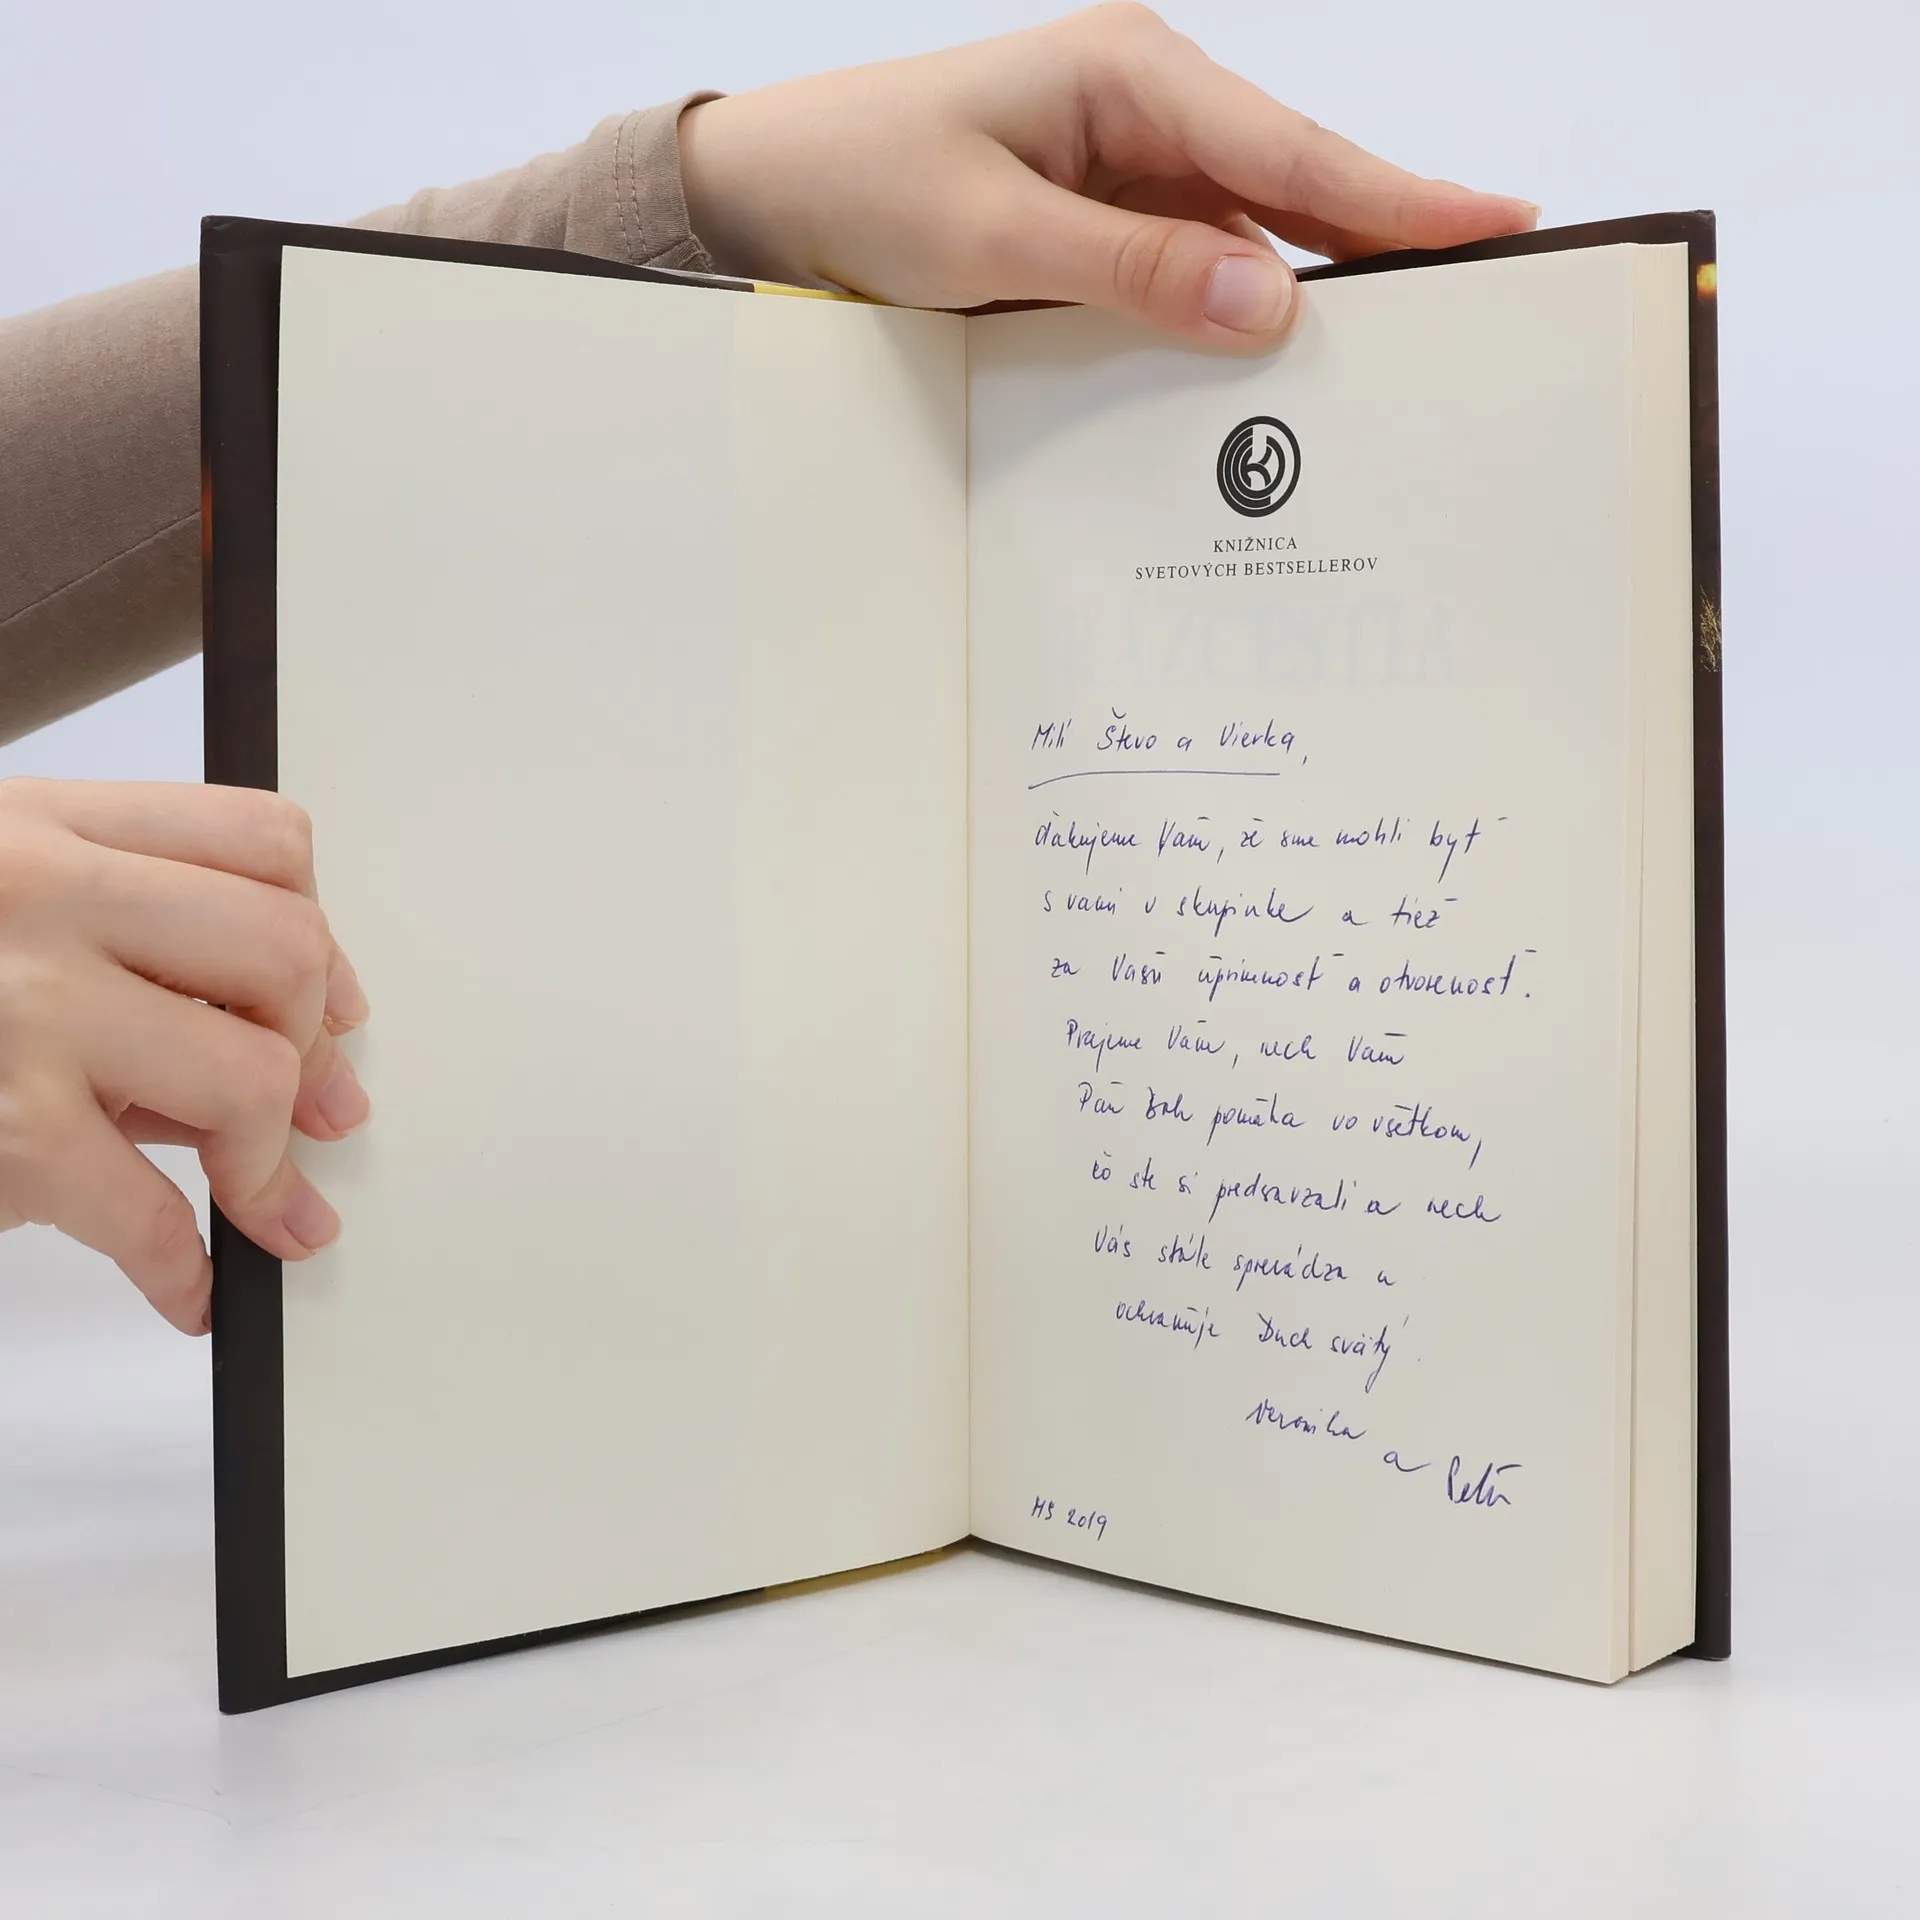 KNIŽNICA
SVETOVÝCH BESTSELLEROV
Milí Števo a Vierka,
ďakujeme Vám, že sme mohli byť
s vami v skupinke a tiež
za Vašu úprimnosť a otvorenosť.
Prajeme Vám, nech Vám
Pán Boh pomáha vo všetkom,
čo ste si predsavzali a nech
Vás stále sprevádza a
ochraňuje Duch svätý.
Veronika
a
Peter
MS 2019